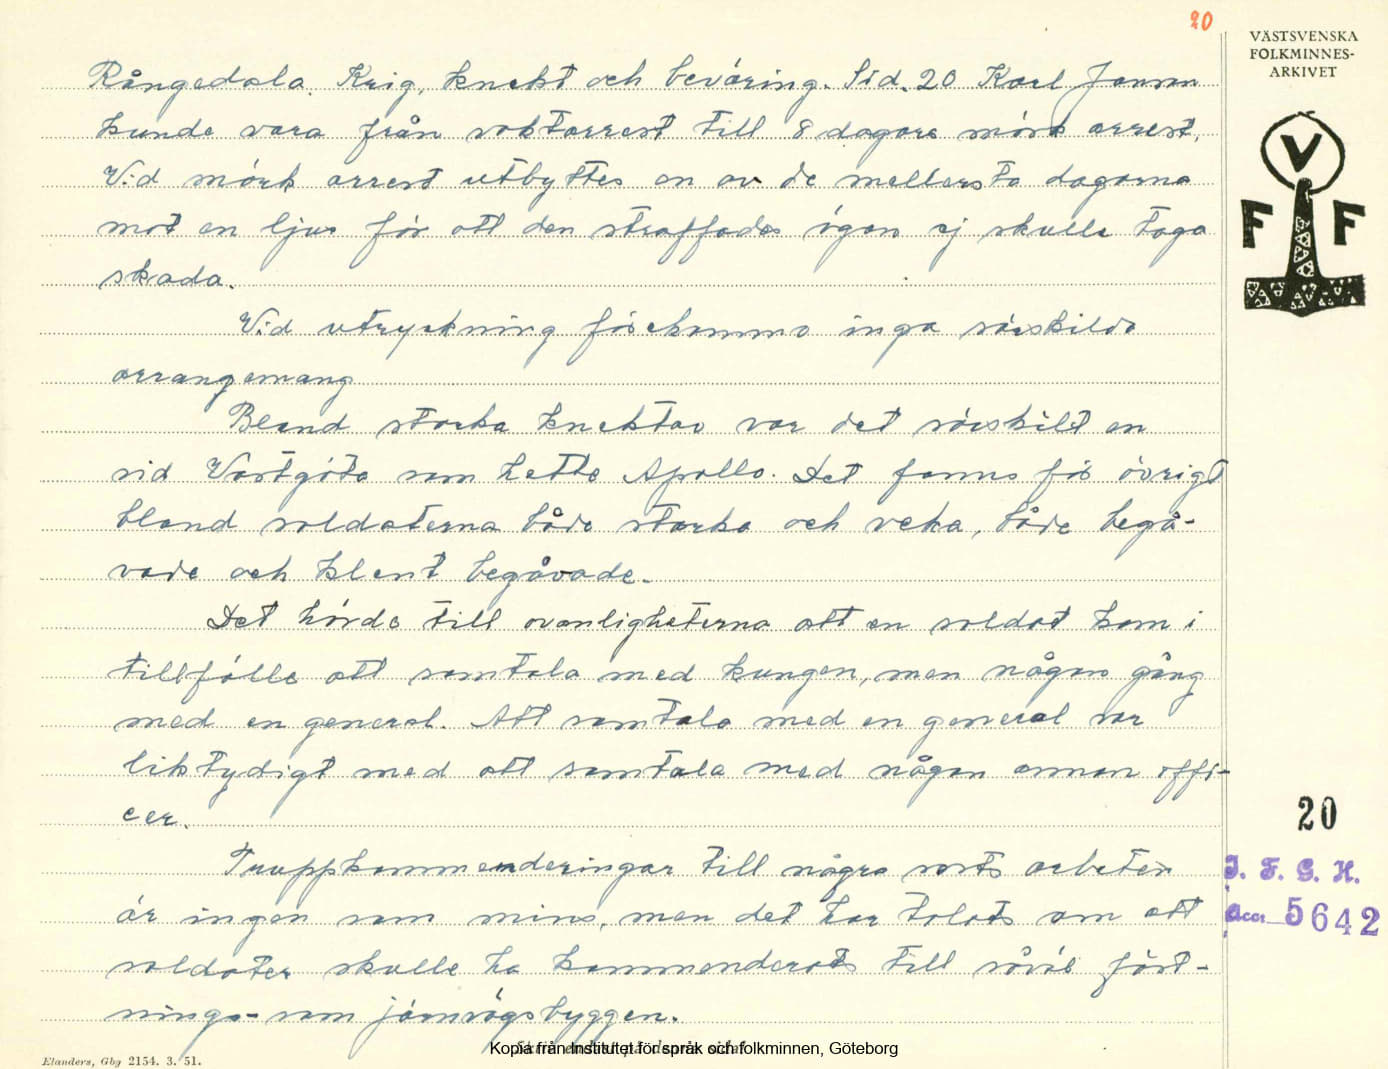 20
VÄSTSVENSKA
FOLKMINNES-
ARKIVET
V
F F
Rångedala. Krig, knekt och beväring. Sid. 20 Karl Jonson
kunde vara från vaktarrest till 8 dagars mörk arrest.
Vid mörk arrest utbyttes en av de mellersta dagarna
mot en ljus för att den straffades ögon ej skulle taga
skada.
Vid utryckning förekommo inga särskilda
arrangemang
Bland starka knektar var det särskilt en
vid Västgöta som hette Apollo. Det fanns för övrigt
bland soldaterna både starka och veka, både begå-
vade och klent begåvade.
Det hörde till ovanligheterna att en soldat kom i
tillfälle att samtala med kungen, men någon gång
med en general. Att samtala med en general var
liktydigt med att samtala med någon annan offi-
cer.
Truppkommenderingar till några sorts arbeten
är ingen som mins, men det har talats om att
soldater skulle ha kommenderats till såväl fäst-
nings- som järnvägsbyggen.
20
I. F. G. H.
acc. 5642
Elanders, Gbg 2154. 3. 51.
Kopia från Institutet för språk och folkminnen, Göteborg